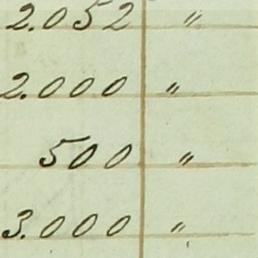 2.052 "
2.000 "
500 "
3.000 "